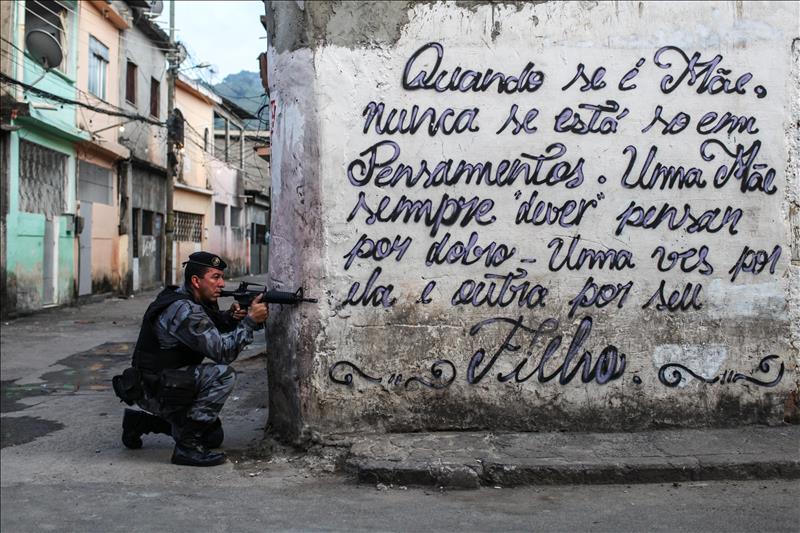 Quando se é Mãe,
nunca se está so em
Pensamentos. Uma Mãe
sempre "dever" pensar
por dobro - Uma ves por
ela e outra por seu
Filho.